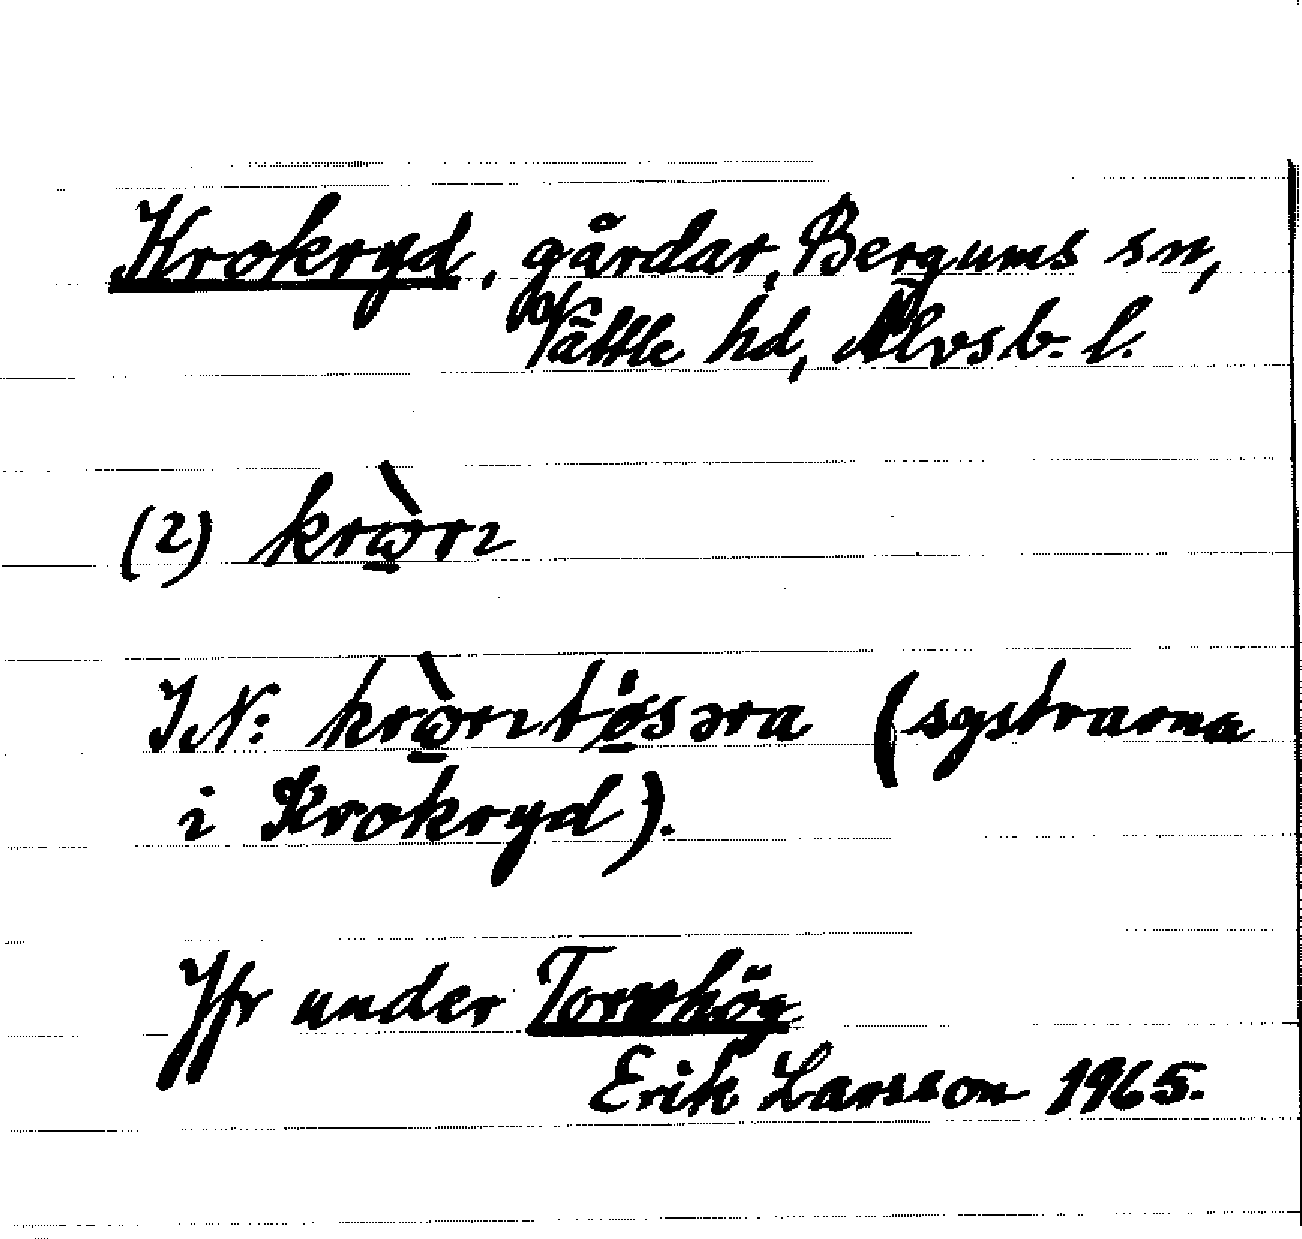 Krokryd, gårdar, Bergums sn,
Vättle hd, Älvsb. l.
(2) krὼrı
IN: krὼrıtösəra (systrarna
i Krokryd).
Jfr under Tornhög
Erik Larsson 1965.